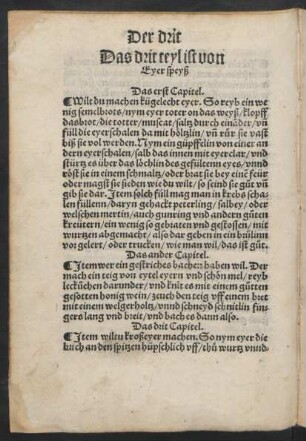 Der drit
Das drit teyl ist von
Eyer speyß
Das erst Capitel.
¶Wilt du machen kügelecht eyer. So reyb ein we
nig semelbrots/nym eyer toter on das weyß/klopff
das brot/die totter/muscat/saltz durch einãder/vñ
füll die eyerschalen da mit höltzlin/vñ rür sie vast
biß sie vol werden. Nym ein güpffelin von einer an
dern eyerschalen/salb das innen mit eyerclar/vnd
stürtz es über das löchlin des gefültenn eyes/vnnd
röst sie in einem schmaltz/oder brat sie bey einẽ feür
oder magst sie sieden wie du wilt/so seind sie gůt vñ
gib sie dar. Item solch füll mag man in krebs scha
len füllenn/daryn gehackt peterling/salbey/oder
welschen mertin/auch gunring vnd andern gůten
kreütern/ein wenig so gebraten vnd gestossen/mit
wurtzen abgemacht/also dar geben in ein brülinn
vor gelert/oder trucken/wie man wil/das ist gůt.
Das ander Capitel.
¶Item wer ein gestriches bachen haben wil. Der
mach ein teyg von eytel eyern vnd schön mel/reyb
leckůchen darunder/vnd knit es mit einem gůten
gesotten honig wein/zeuch den teig vff einem bret
mit einem welgerholtz/vnnd schneyd schnitlin fin
gers lang vnd breit/vnd bach es dann also.
Das drit Capitel.
¶Item wiltu kroßeyer machen. So nym eyer die
buch an den spitzen hüpschlich vff/thů wurtz vnnd-